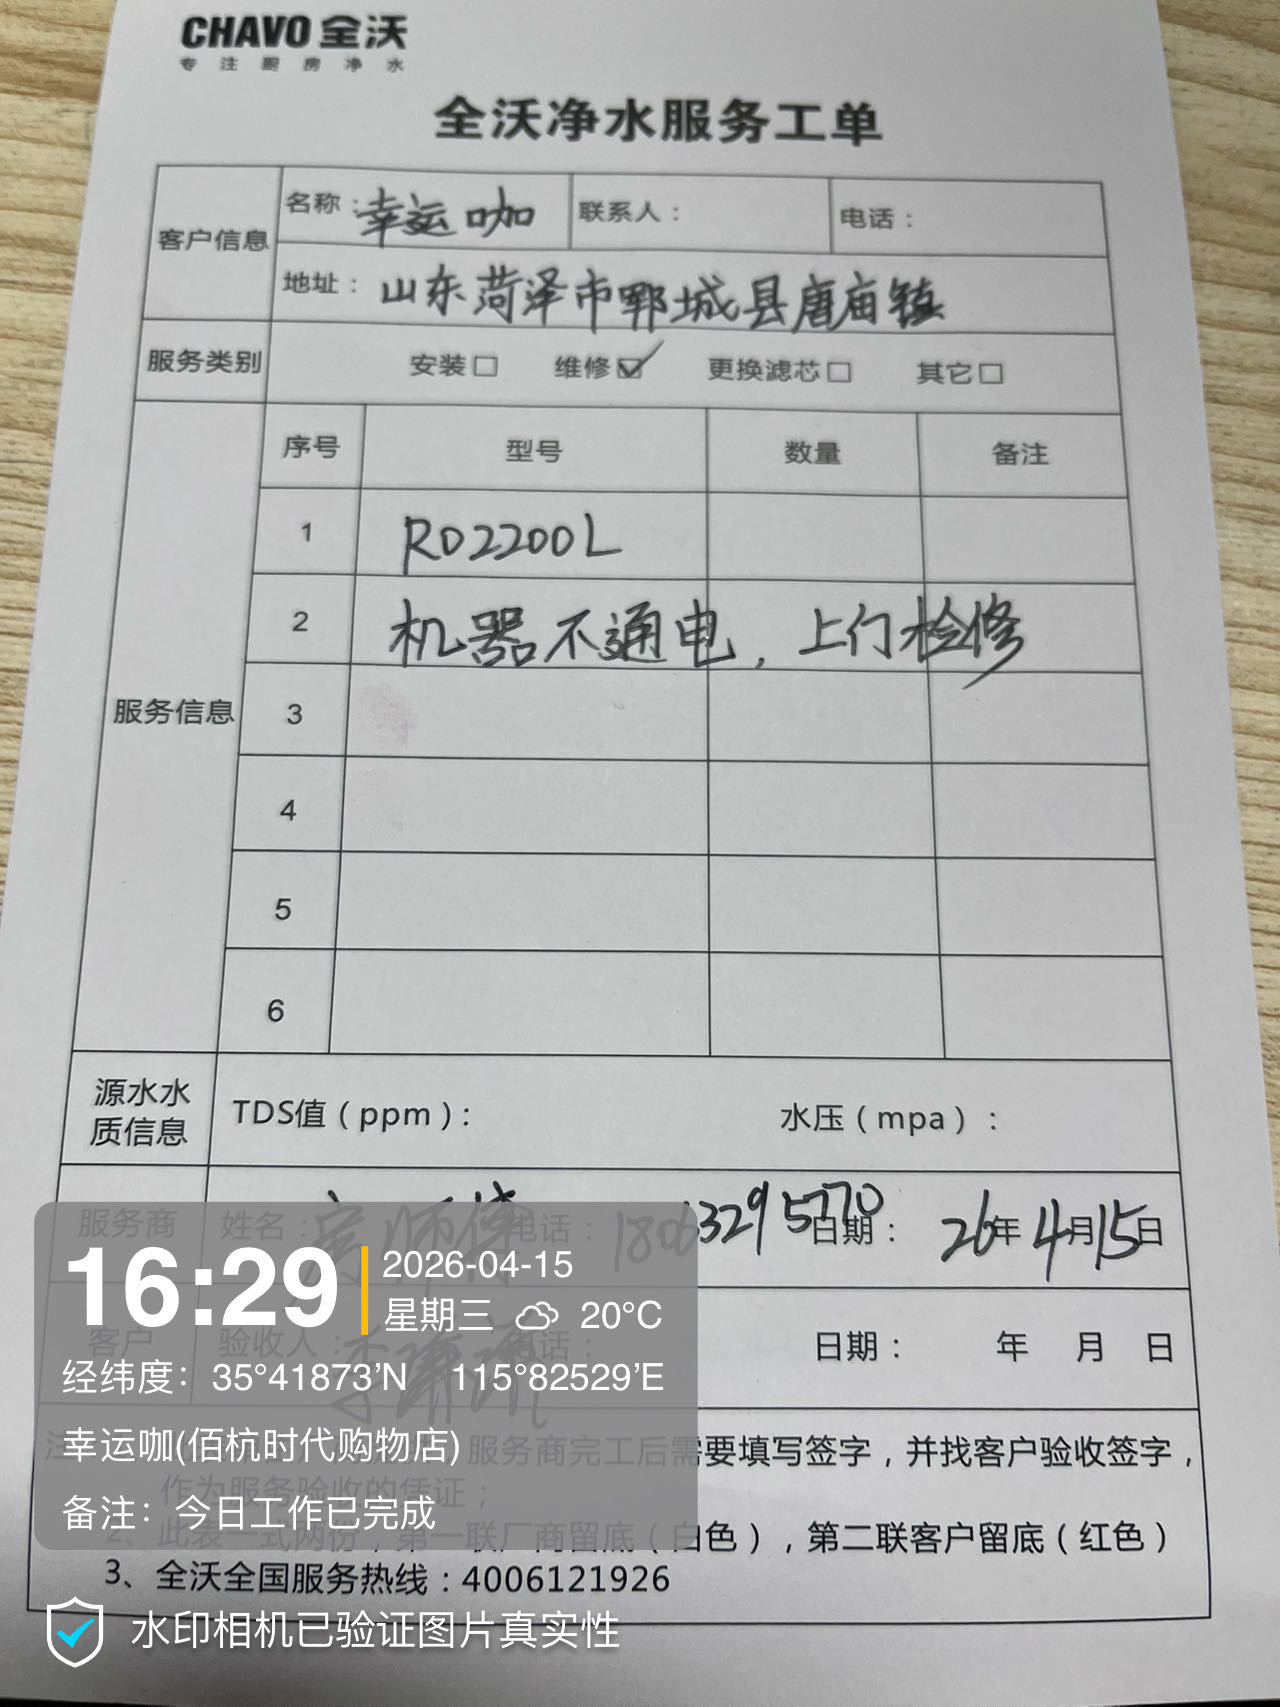 CHAVO 全沃
专注厨房净水
全沃净水服务工单
客户信息 名称：幸运咖 联系人： 电话：
地址：山东菏泽市郓城县唐庙镇
服务类别 安装□ 维修☑ 更换滤芯□ 其它□
服务信息 序号 型号 数量 备注
1 RO2200L
2 机器不通电，上门检修
3
4
5
6
源水水质信息 TDS值（ppm）： 水压（mpa）：
服务商 姓名： 师傅 电话： 日期：26年4月15日
客户 验收人：李 电话： 日期： 年 月 日
服务商完工后需要填写签字，并找客户验收签字，
作为服务验收的凭证；
2、此表一式两份，第一联厂商留底（白色），第二联客户留底（红色）
3、全沃全国服务热线：4006121926
16:29
2026-04-15
星期三 20°C
经纬度：35°41873'N 115°82529'E
幸运咖(佰杭时代购物店)
备注：今日工作已完成
水印相机已验证图片真实性